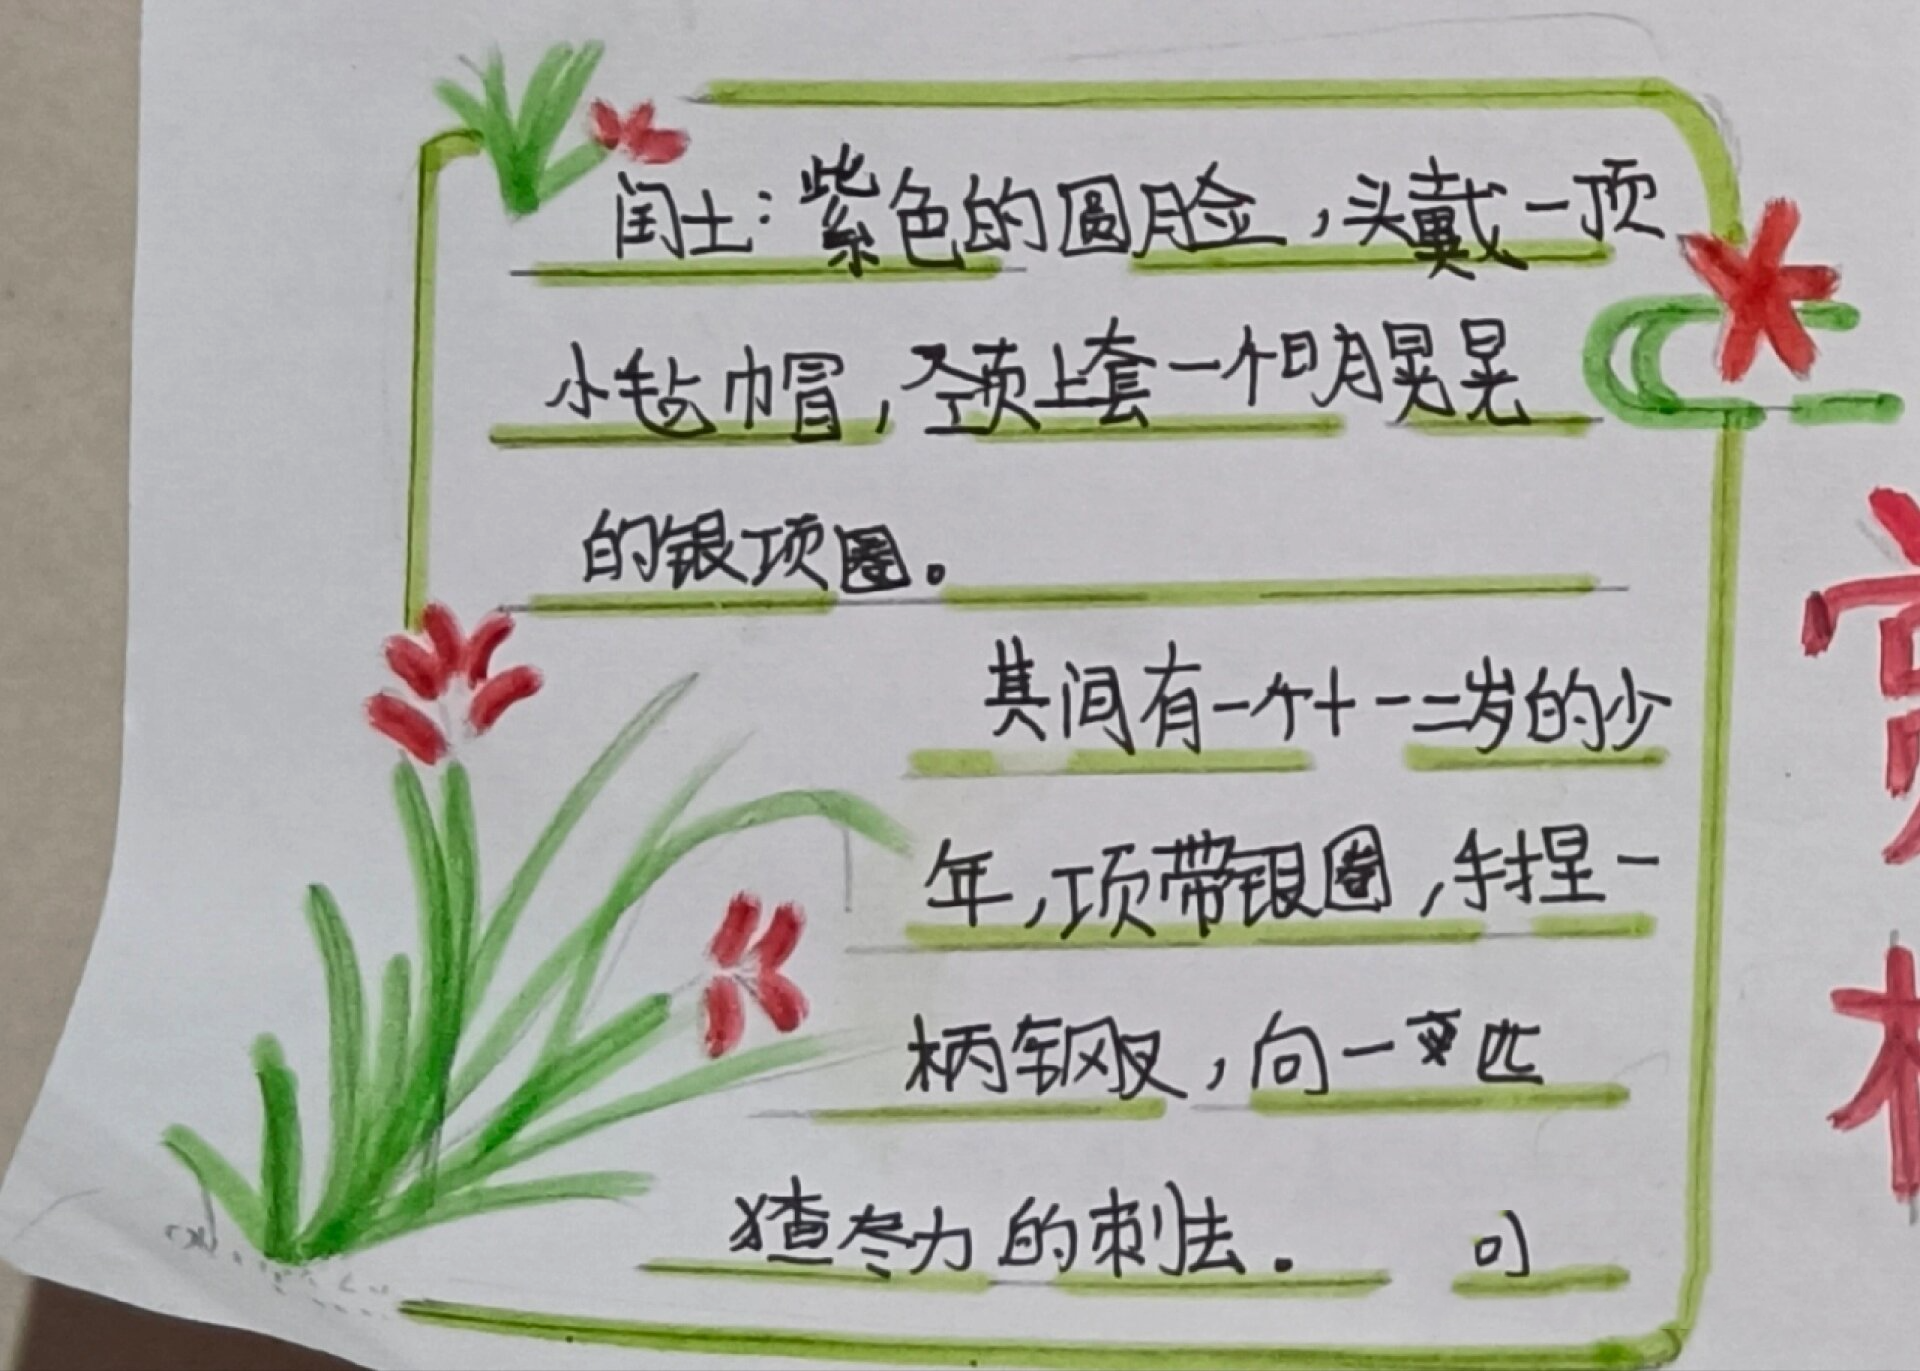 闰土：紫色的圆脸，头戴一顶
小毡帽，颈上套一个明晃晃
的银项圈。
其间有一个十一二岁的少
年，项带银圈，手捏一
柄钢叉，向一匹
猹尽力的刺去.